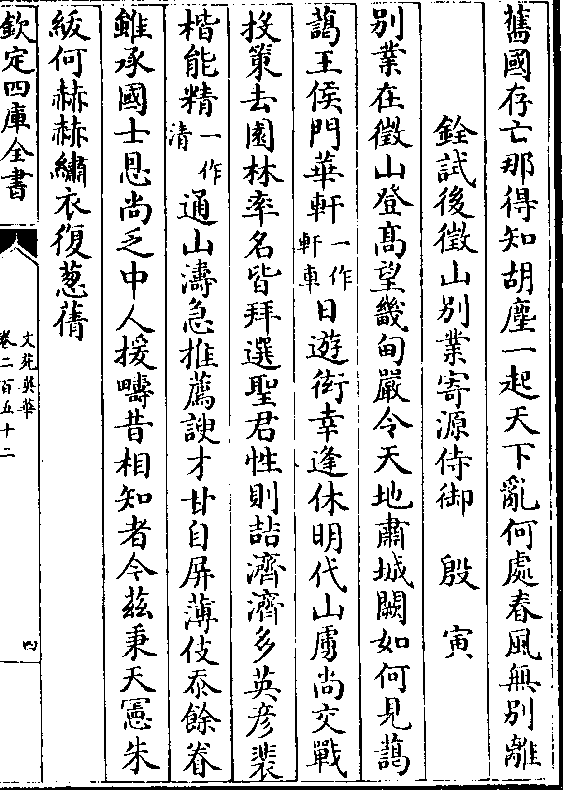 舊國存亡那得知胡塵一起天下亂何處春風無別離
銓試後徵山別業寄源侍御　殷　寅
別業在徵山登髙望畿甸嚴令天地肅城闕如何見藹
藹王侯門華軒一作軒車日遊衒幸逢休明代山虜尚交戰
投策去園林率名皆拜選聖君性則喆濟濟多英彦裴
楷能精一作清通山濤急推薦謏才甘自屏薄伎忝餘眷
雖承國士恩尚乏中人援疇昔相知者今兹秉天憲朱
紱何赫赫繡衣復葱蒨
欽定四庫全書
文苑英華
卷二百五十二
四